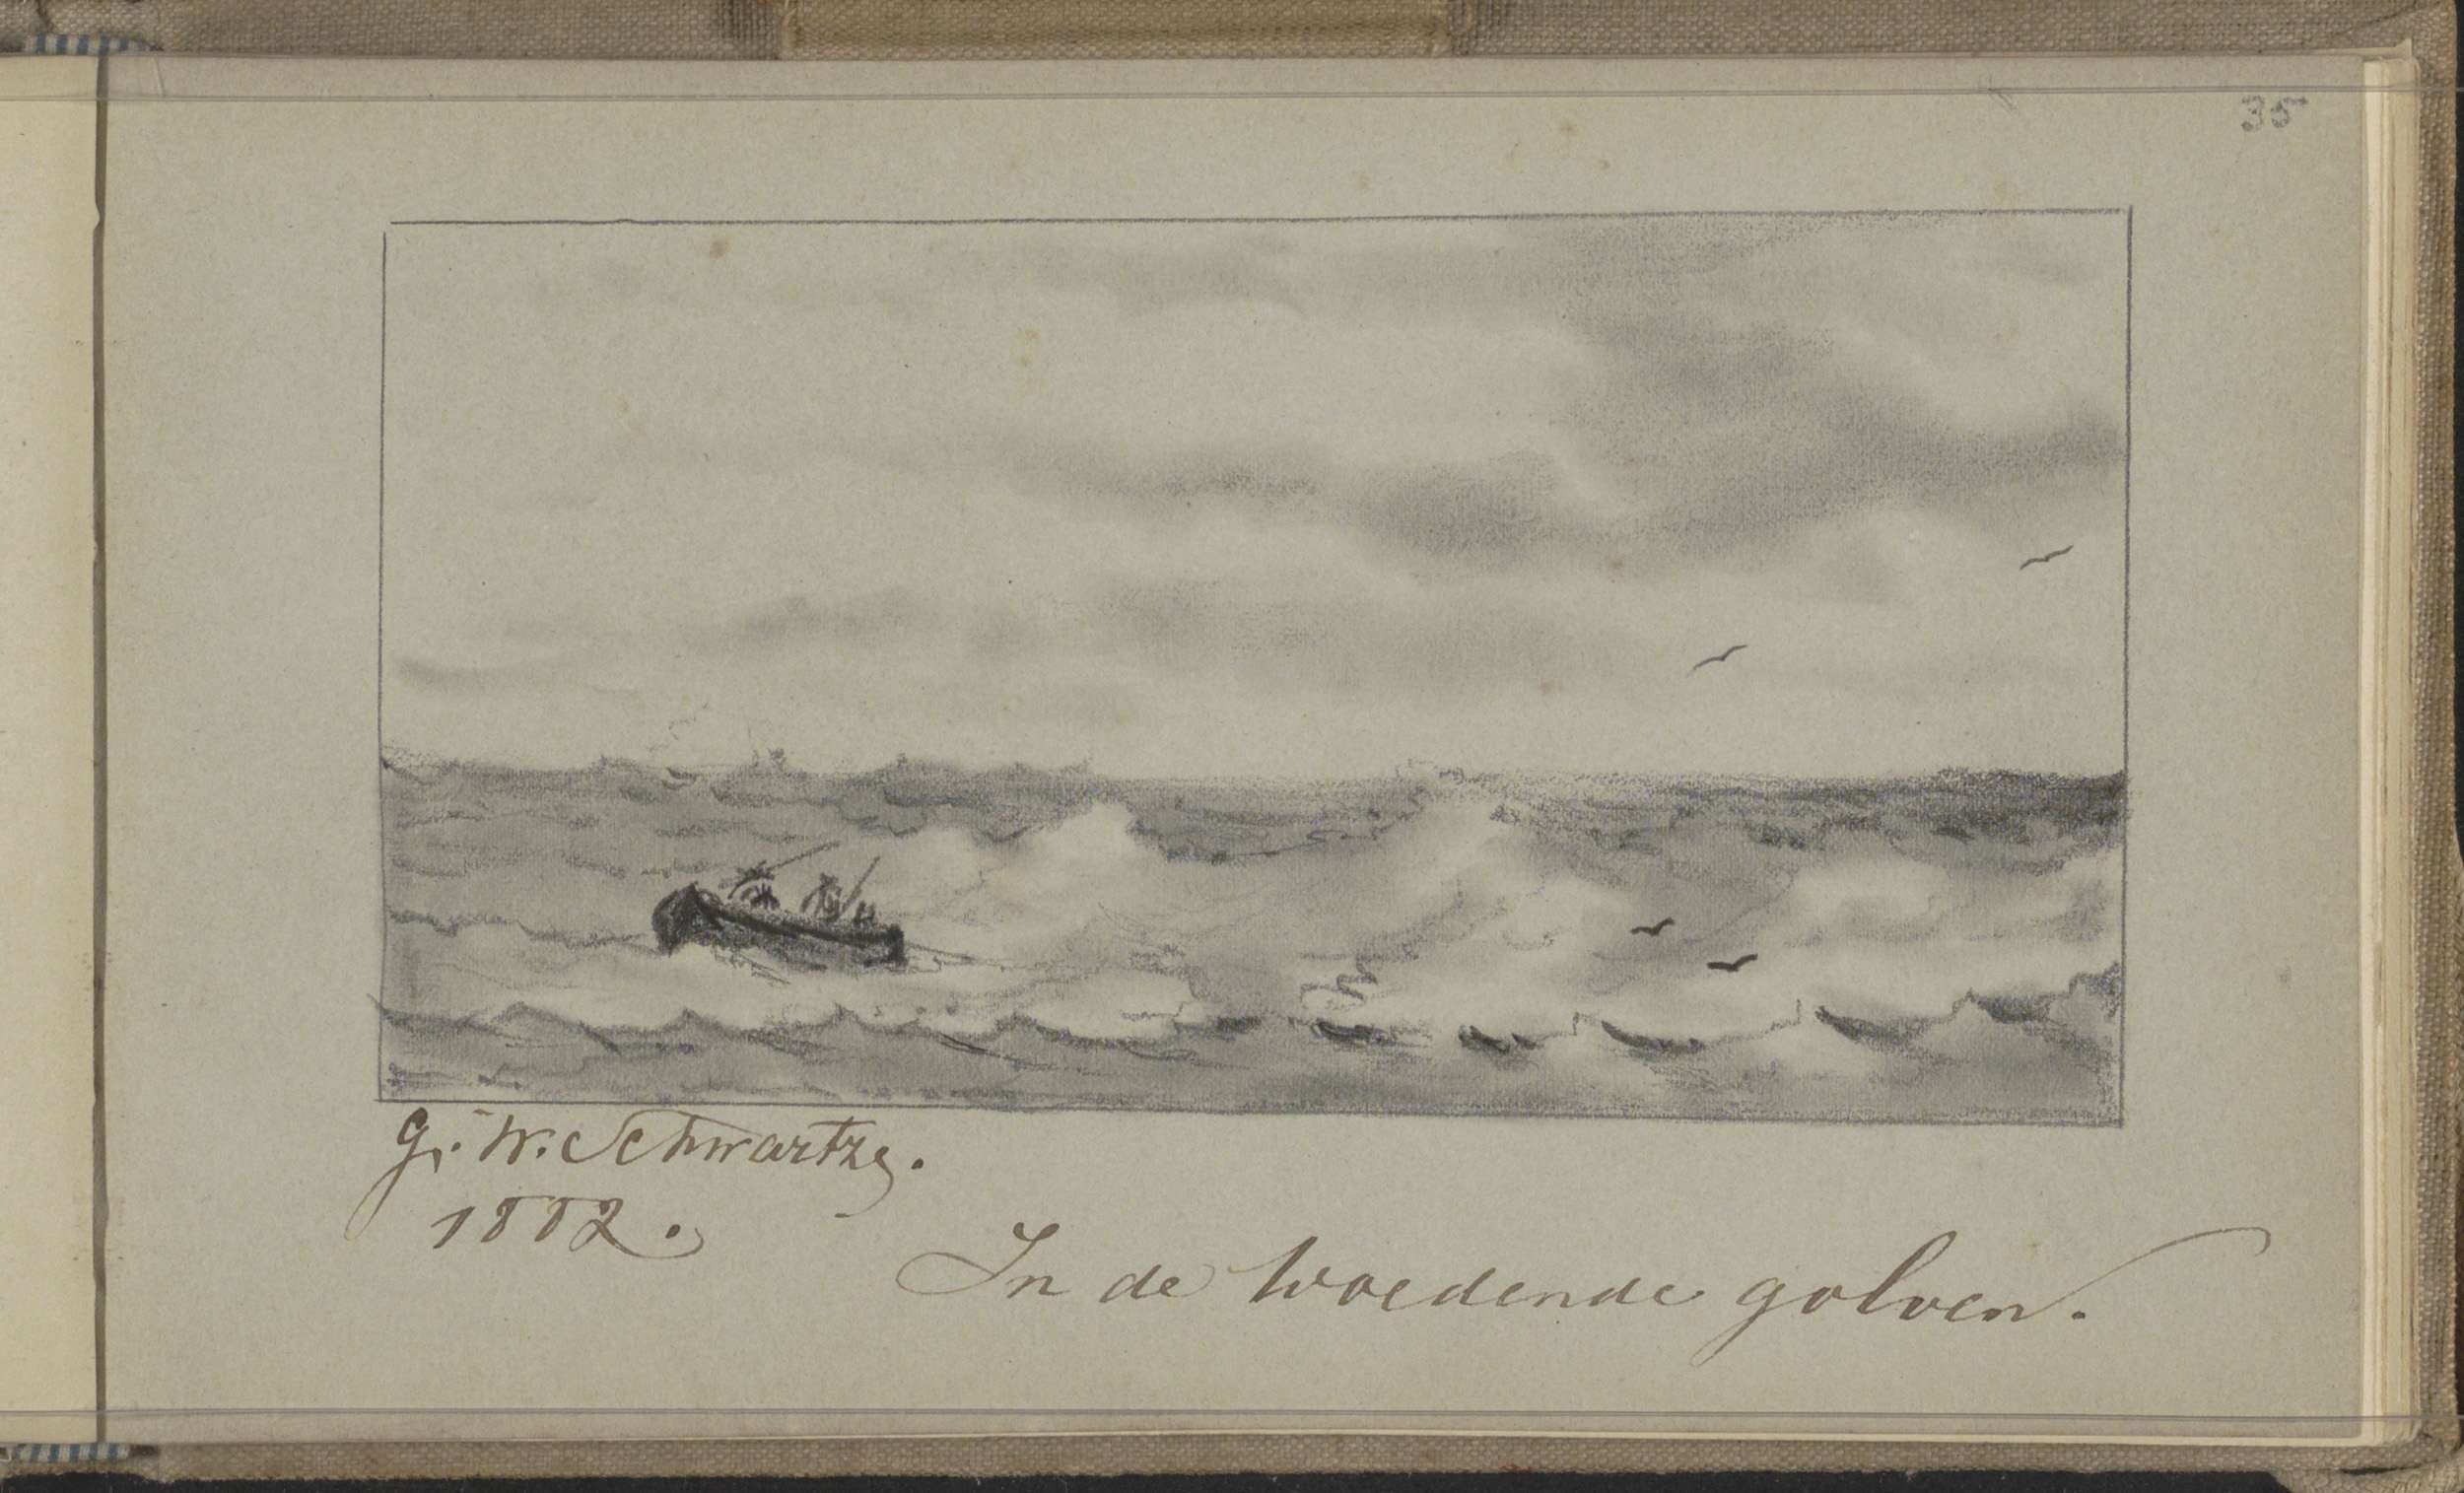 35
G. W. Schwartze.
1882.
In de woedende golven.